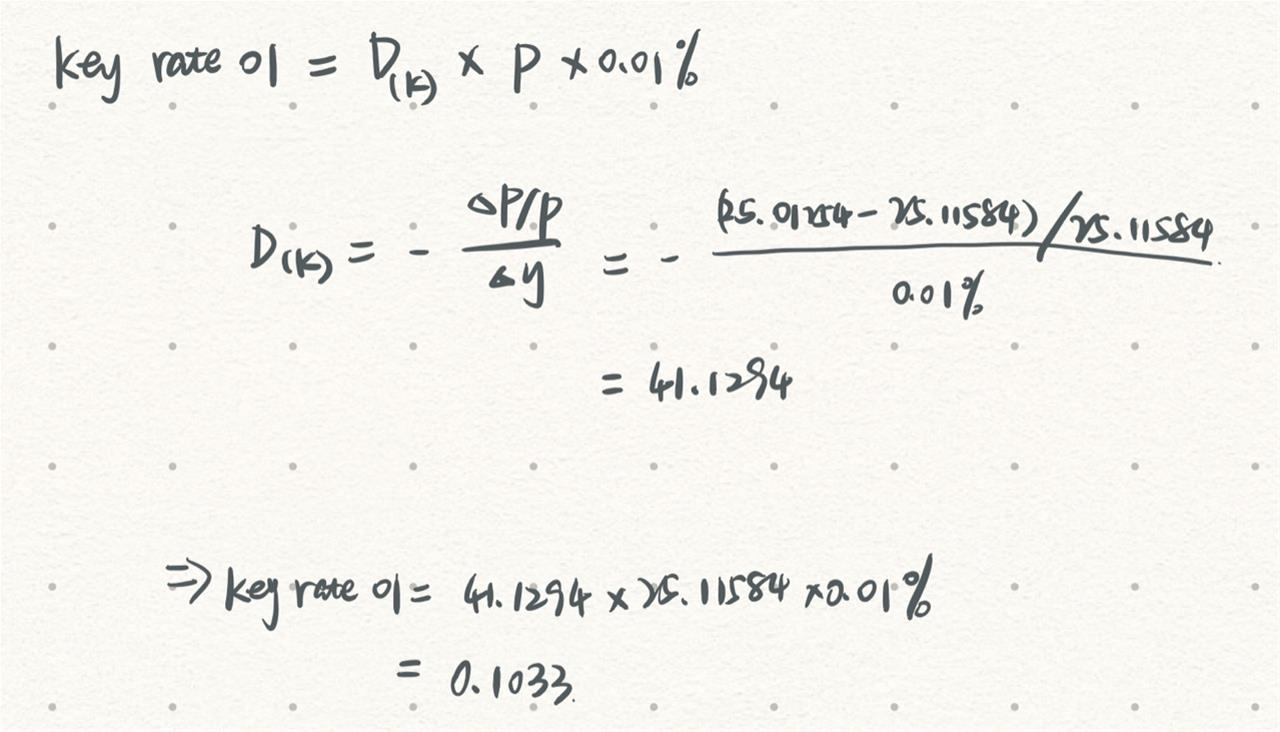 key rate 01 = D(k) × P × 0.01%
D(k) = - ΔP/P / Δy = - (25.01254 - 25.11584)/25.11584 / 0.01%
= 41.1294
⇒ key rate 01 = 41.1294 × 25.11584 × 0.01%
= 0.1033.